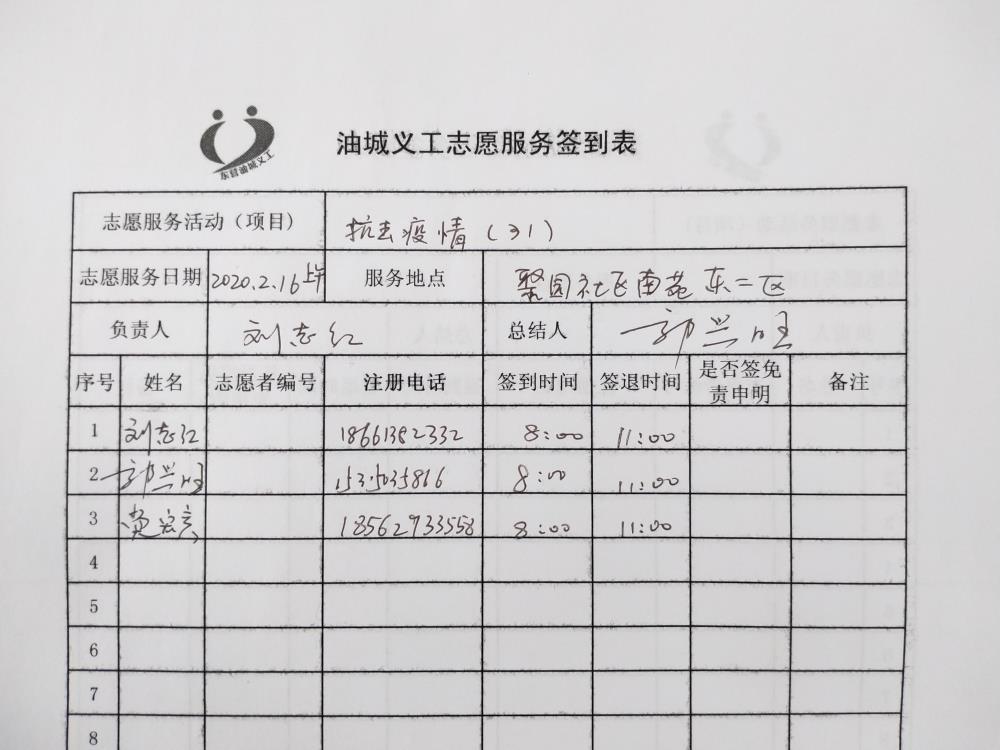 东营油城义工
油城义工志愿服务签到表
志愿服务活动（项目） 抗击疫情（31）
志愿服务日期 2020.2.16上午 服务地点 聚园社区南苑东二区
负责人 刘志红 总结人 郭兴旺
序号 姓名 志愿者编号 注册电话 签到时间 签退时间 是否签免责申明 备注
1 刘志红 18661382332 8:00 11:00
2 郭兴旺 8:00 11:00
3 18562933558 8:00 11:00
4
5
6
7
8